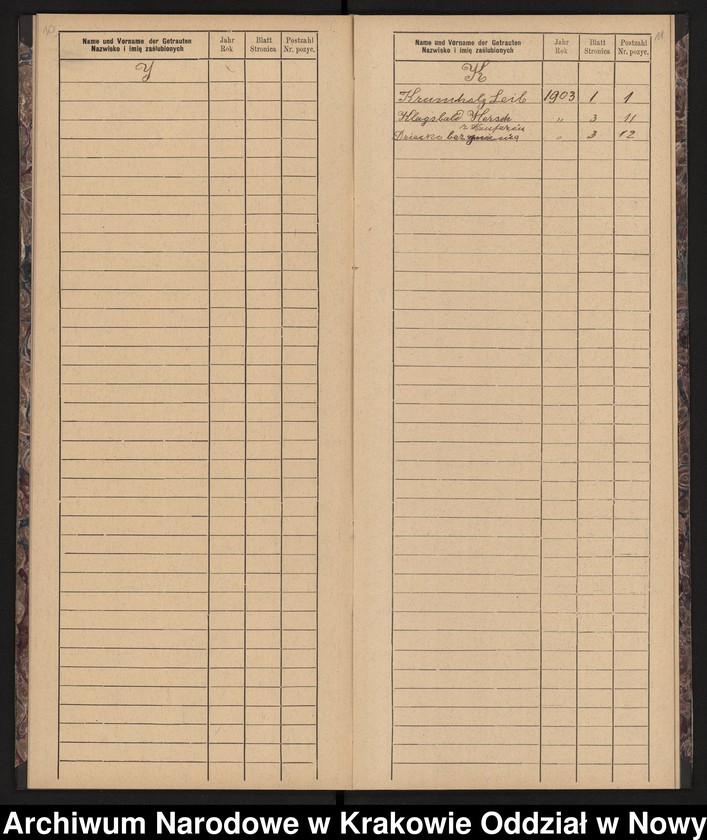 10
Name und Vorname der Getrauten
Nazwisko i imię zaślubionych
Jahr
Rok
Blatt
Stronica
Postzahl
Nr. pozyc.
Y
11
Name und Vorname der Getrauten
Nazwisko i imię zaślubionych
Jahr
Rok
Blatt
Stronica
Postzahl
Nr. pozyc.
K
Krumholz Leib 1903 1 1
Klagsbald Hersch " 3 11
Dziecko bez " 3 12
Archiwum Narodowe w Krakowie Oddział w Nowy